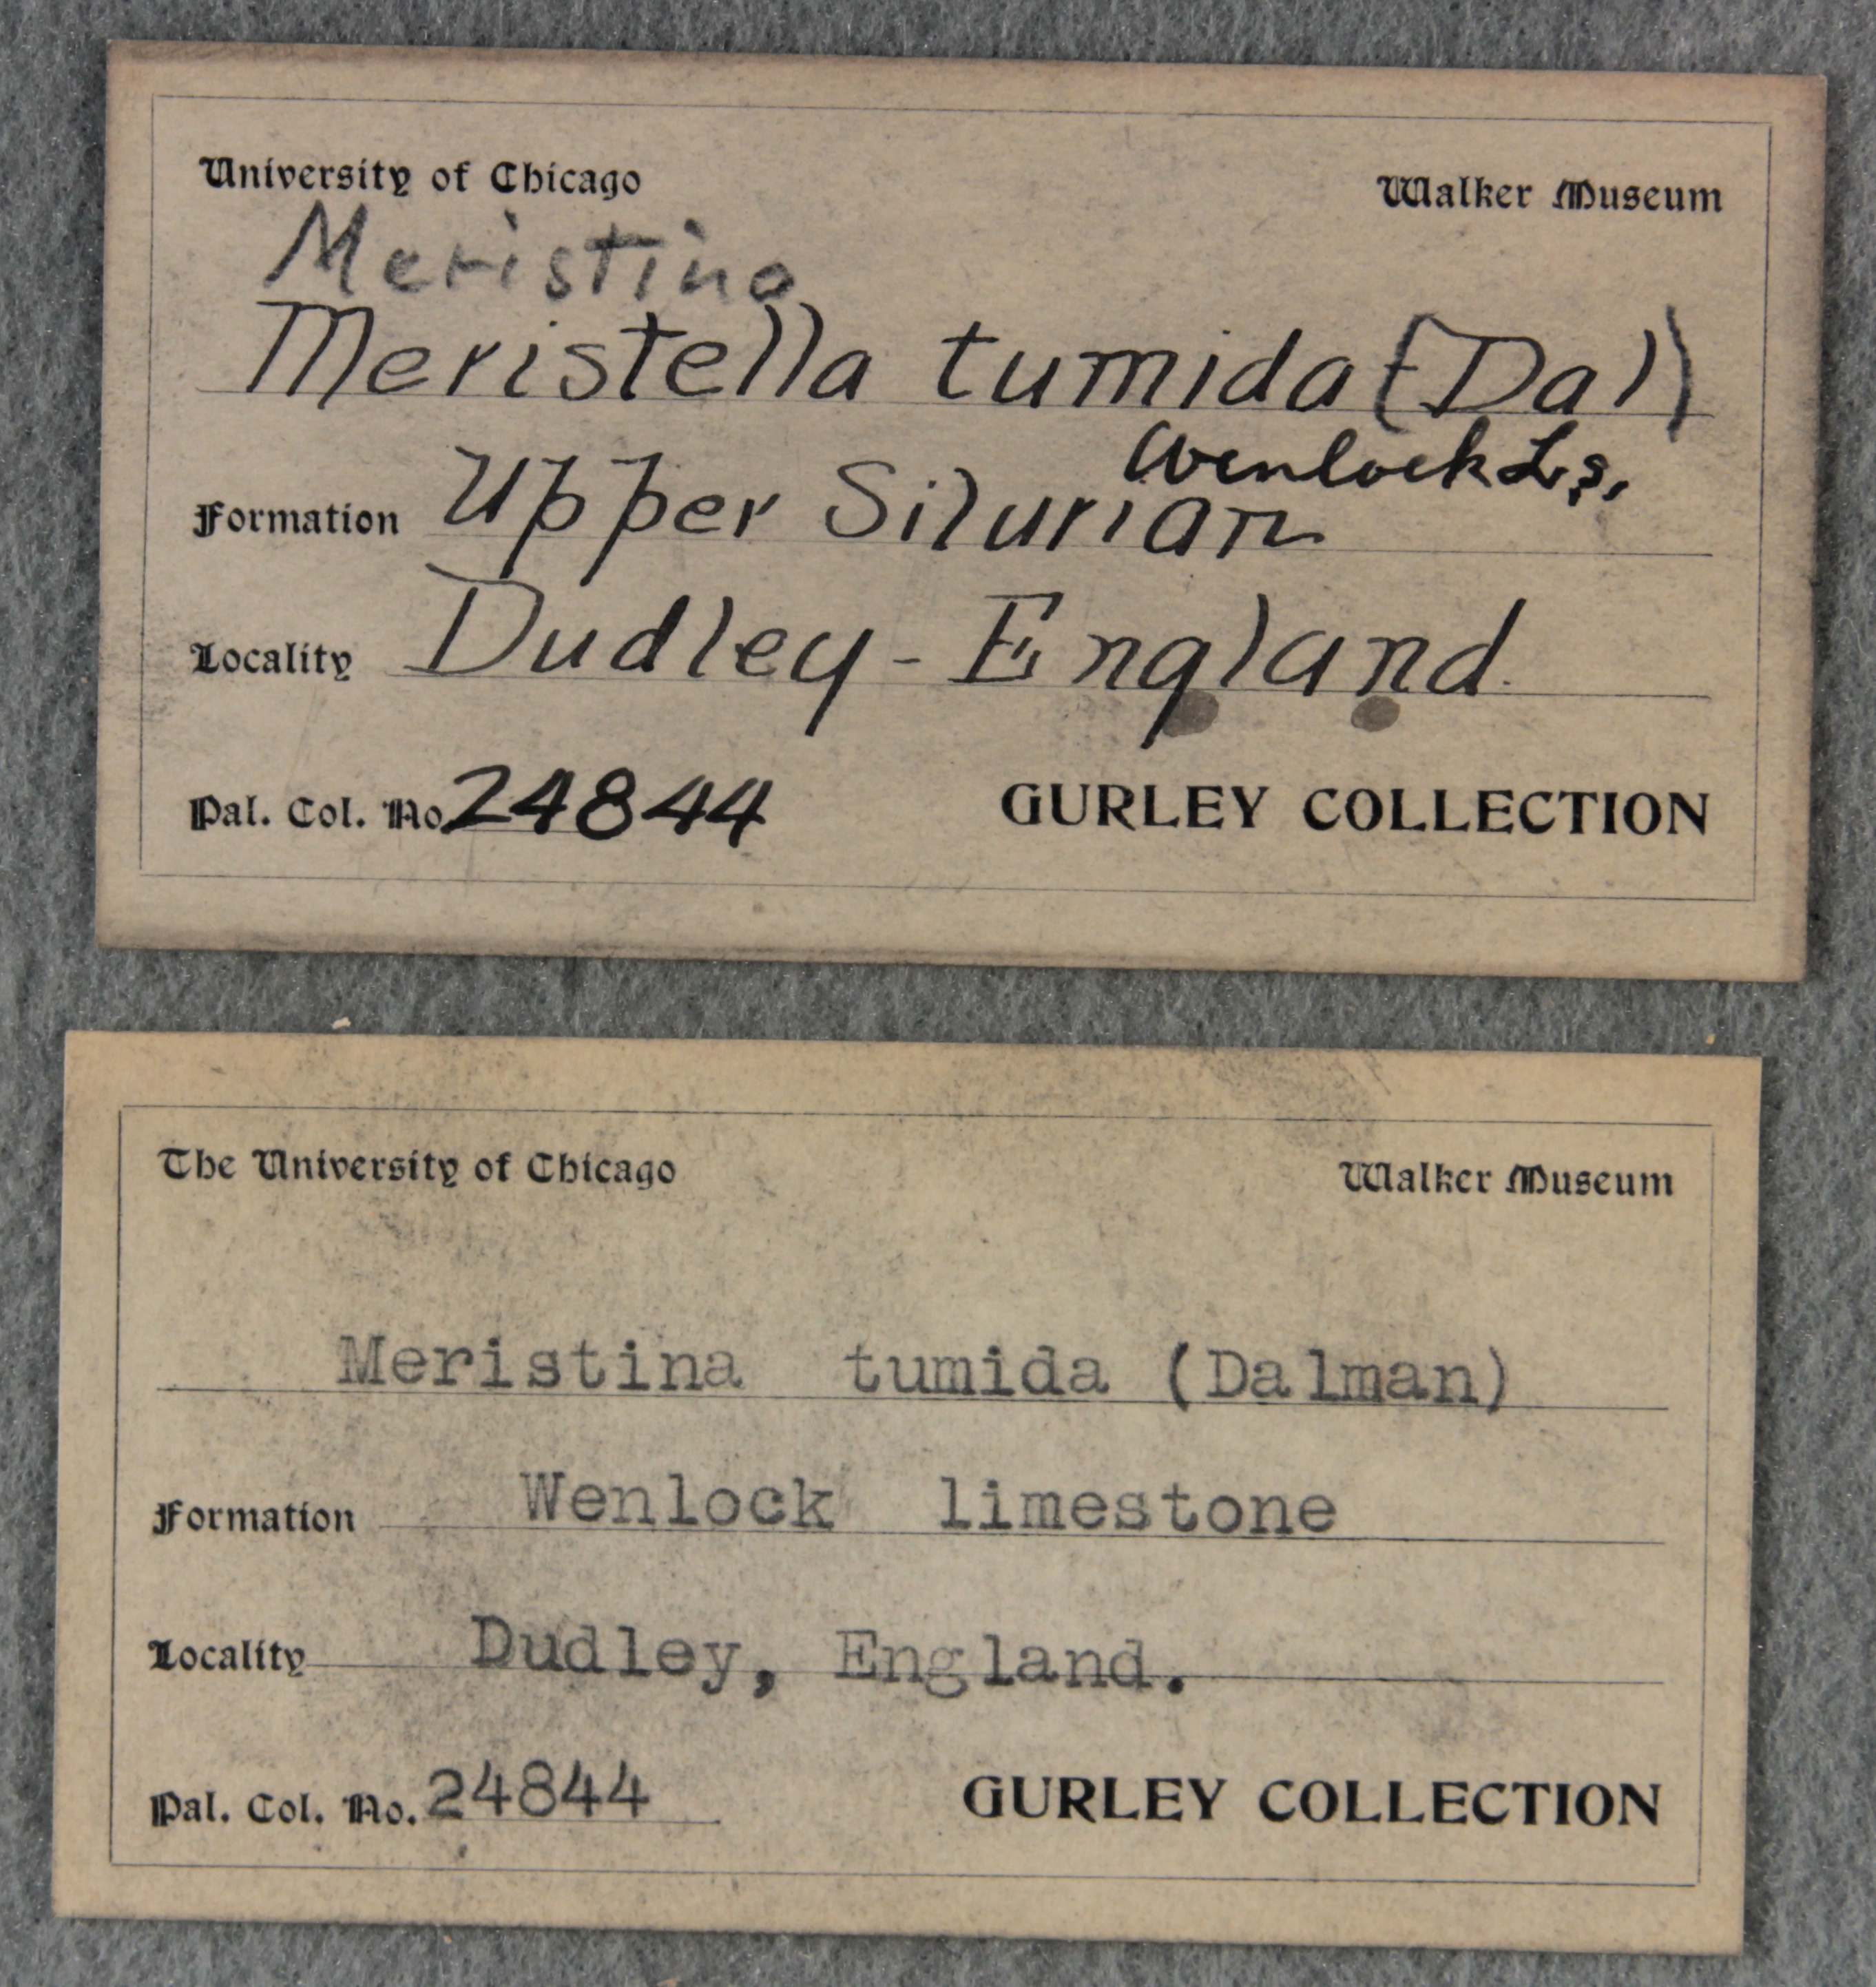 University of Chicago Walker Museum
Meristina
Meristella tumida (Dal)
Wenlock Ls.
Formation Upper Silurian
Locality Dudley - England.
Pal. Col. No. 24844 GURLEY COLLECTION
The University of Chicago Walker Museum
Meristina tumida (Dalman)
Formation Wenlock limestone
Locality Dudley, England.
Pal. Col. No. 24844 GURLEY COLLECTION